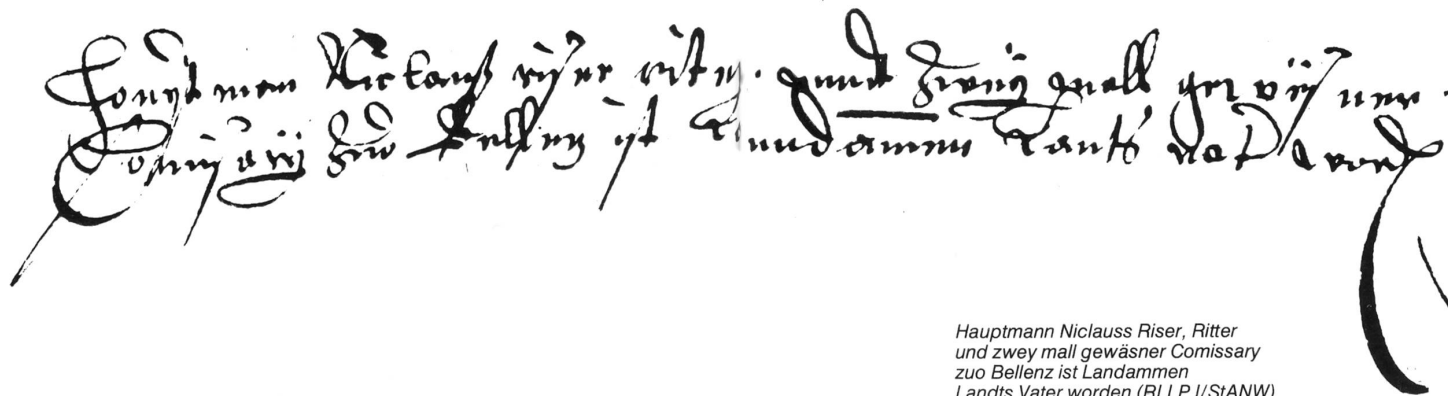 Houptman Niclauß riser riter. unnd zweÿ mall gewäsner
Comisarÿ zuo Bellentz ist Lanndamen Lants Vatter worden
Hauptmann Niclauss Riser, Ritter
und zwey mall gewäsner Comissary
zuo Bellenz ist Landammen
Landts Vater worden (RLLP I/StANW)